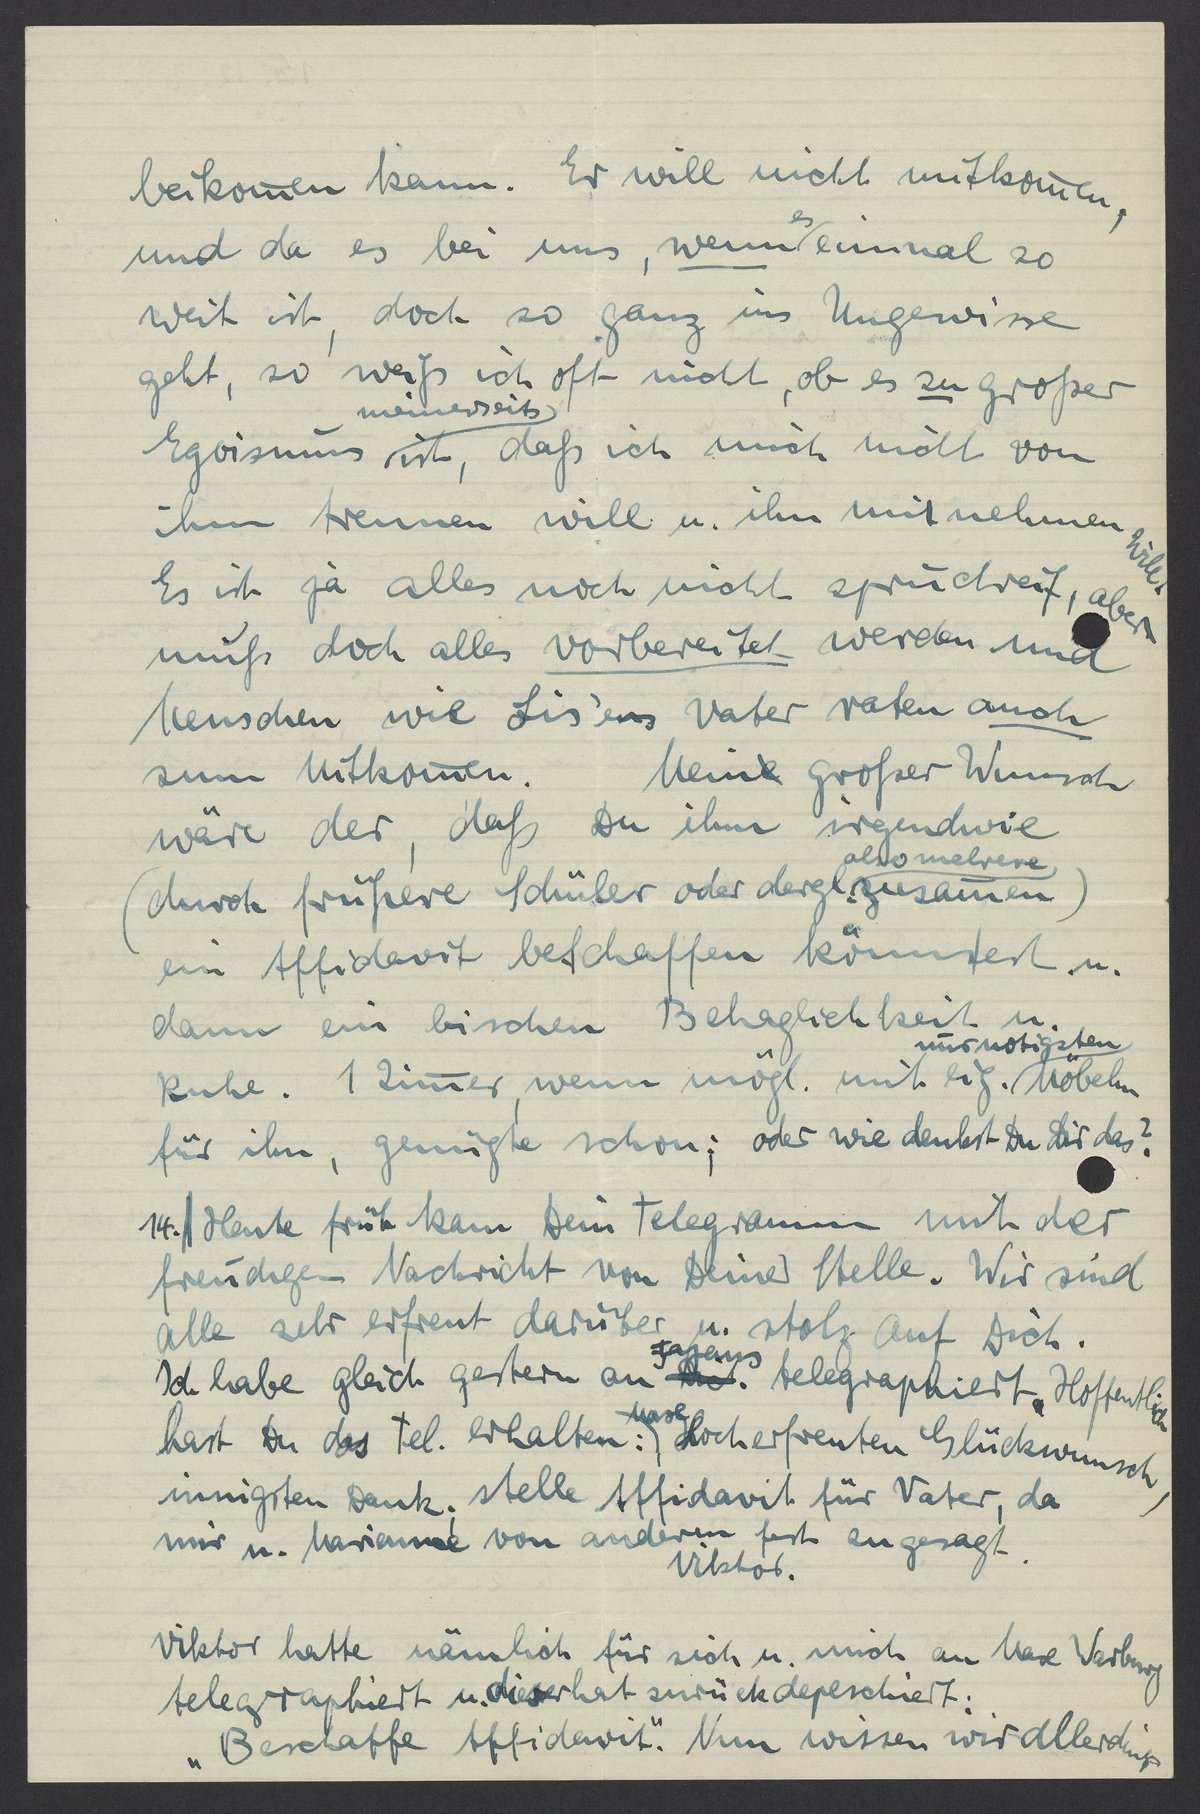 beikom̄en kann. Er will nicht mitkom̄en,
und da es bei uns, wenn es einmal so
weit ist, doch so ganz ins Ungewisse
geht, so weiß ich oft nicht, ob es zu großer
Egoismus meinerseits ist, daß ich mich nicht von
ihm trennen will u. ihn mitnehmen will.
Es ist ja alles noch nicht spruchreif, aber
muß doch alles vorbereitet werden und
Menschen wie Lis'ens Vater raten auch
zum Mitkom̄en. Mein großer Wunsch
wäre der, daß Du ihm irgendwie
(durch frühere Schüler oder dergl. also mehrere zusam̄en)
ein Affidavit beschaffen könntest u.
dann ein bischen Behaglichkeit u.
Ruhe. 1 Zim̄er, wenn mögl. mit eig. nur nötigsten Möbeln
für ihn, genügte schon; oder wie denkst Du Dir das?
14. Heute früh kam Dein Telegramm mit der
freudigen Nachricht von Deiner Stelle. Wir sind
alle sehr erfreut darüber u. stolz auf Dich.
Ich habe gleich gestern an telegraphiert. Hoffentlich
hast Du das Tel. erhalten: Hocherfreuten Glückwunsch,
innigsten Dank, stelle Affidavit für Vater, da
mir u. Marianne von anderen fest zugesagt.
Viktor.
Viktor hatte nämlich für sich u. mich an Max Warburg
telegraphiert u. dieser hat zurückdepeschiert:
„Beschaffe Affidavit". Nun wissen wir allerdings